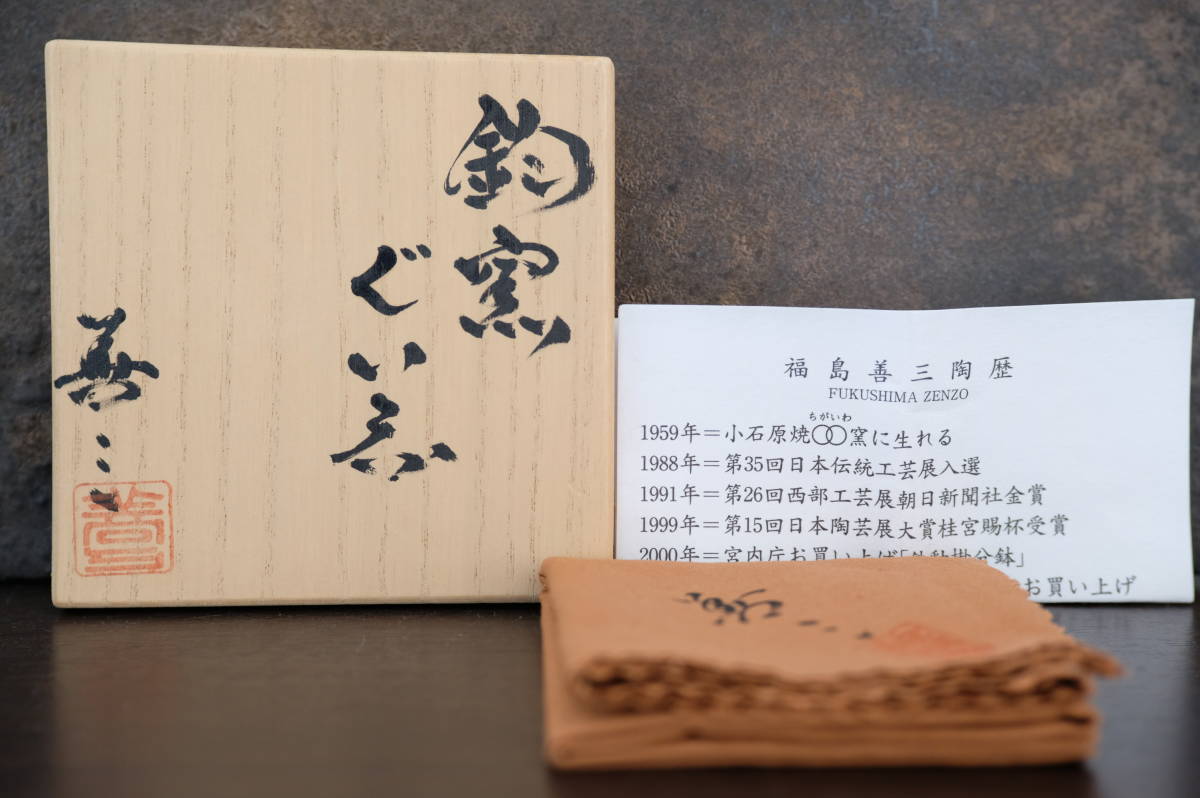 鈞窯
ぐい呑
善三
福島善三陶歴
FUKUSHIMA ZENZO
ちがいわ
1959年＝小石原焼◯◯窯に生れる
1988年＝第35回日本伝統工芸展入選
1991年＝第26回西部工芸展朝日新聞社金賞
1999年＝第15回日本陶芸展大賞桂宮賜杯受賞
2000年＝宮内庁お買い上げ「鉢」
お買い上げ